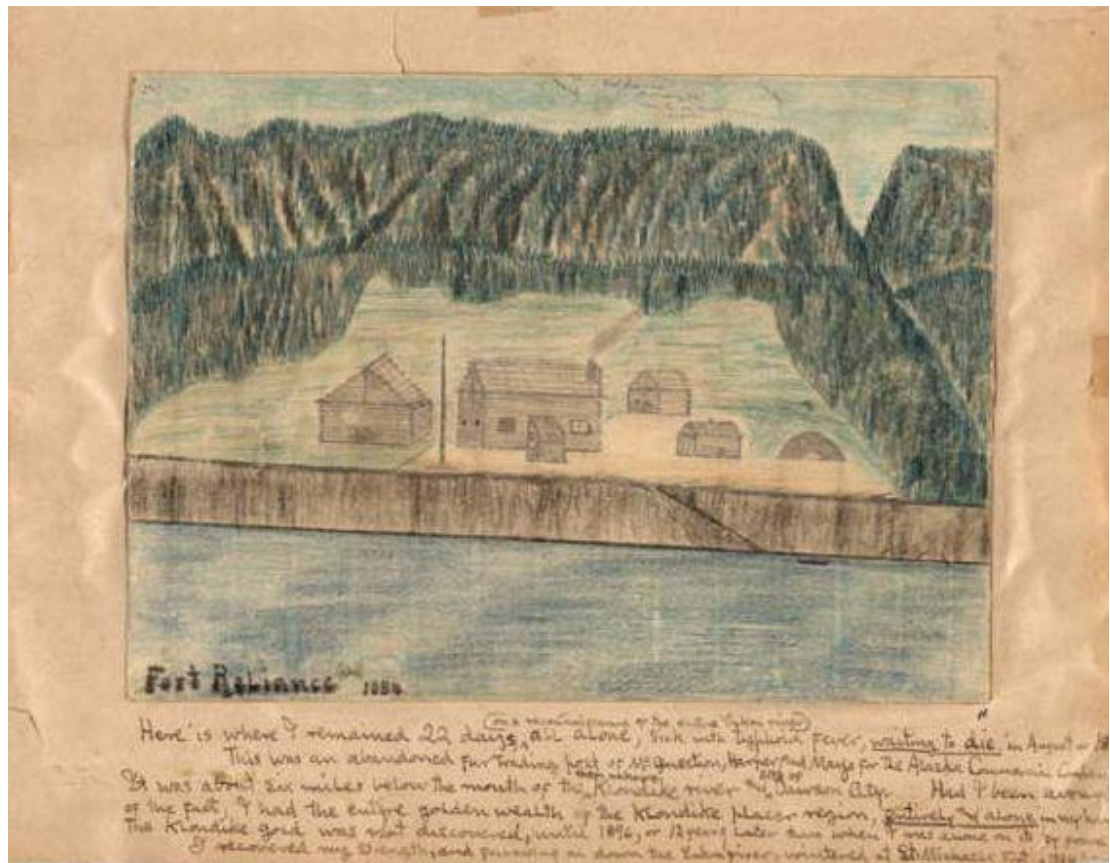 Fort Reliance 1884
(on a reconnaissance of the entire Yukon river)
Here is where I remained 22 days, all alone, sick with typhoid fever, waiting to die, in August
This was an abandoned fur trading post of McQuestion, Harper and Mayo for the Alaska Commercial
It was about six miles below the mouth of the Klondike river & Dawson City. Had I been aware
site of
of the fact, I had the entire golden wealth of the Klondike placer region, entirely & alone in my
The Klondike gold was not discovered, until 1896, or 12 years later than when I was alone on its
I recovered my strength, and down the Yukon river, wintered at St. Michaels